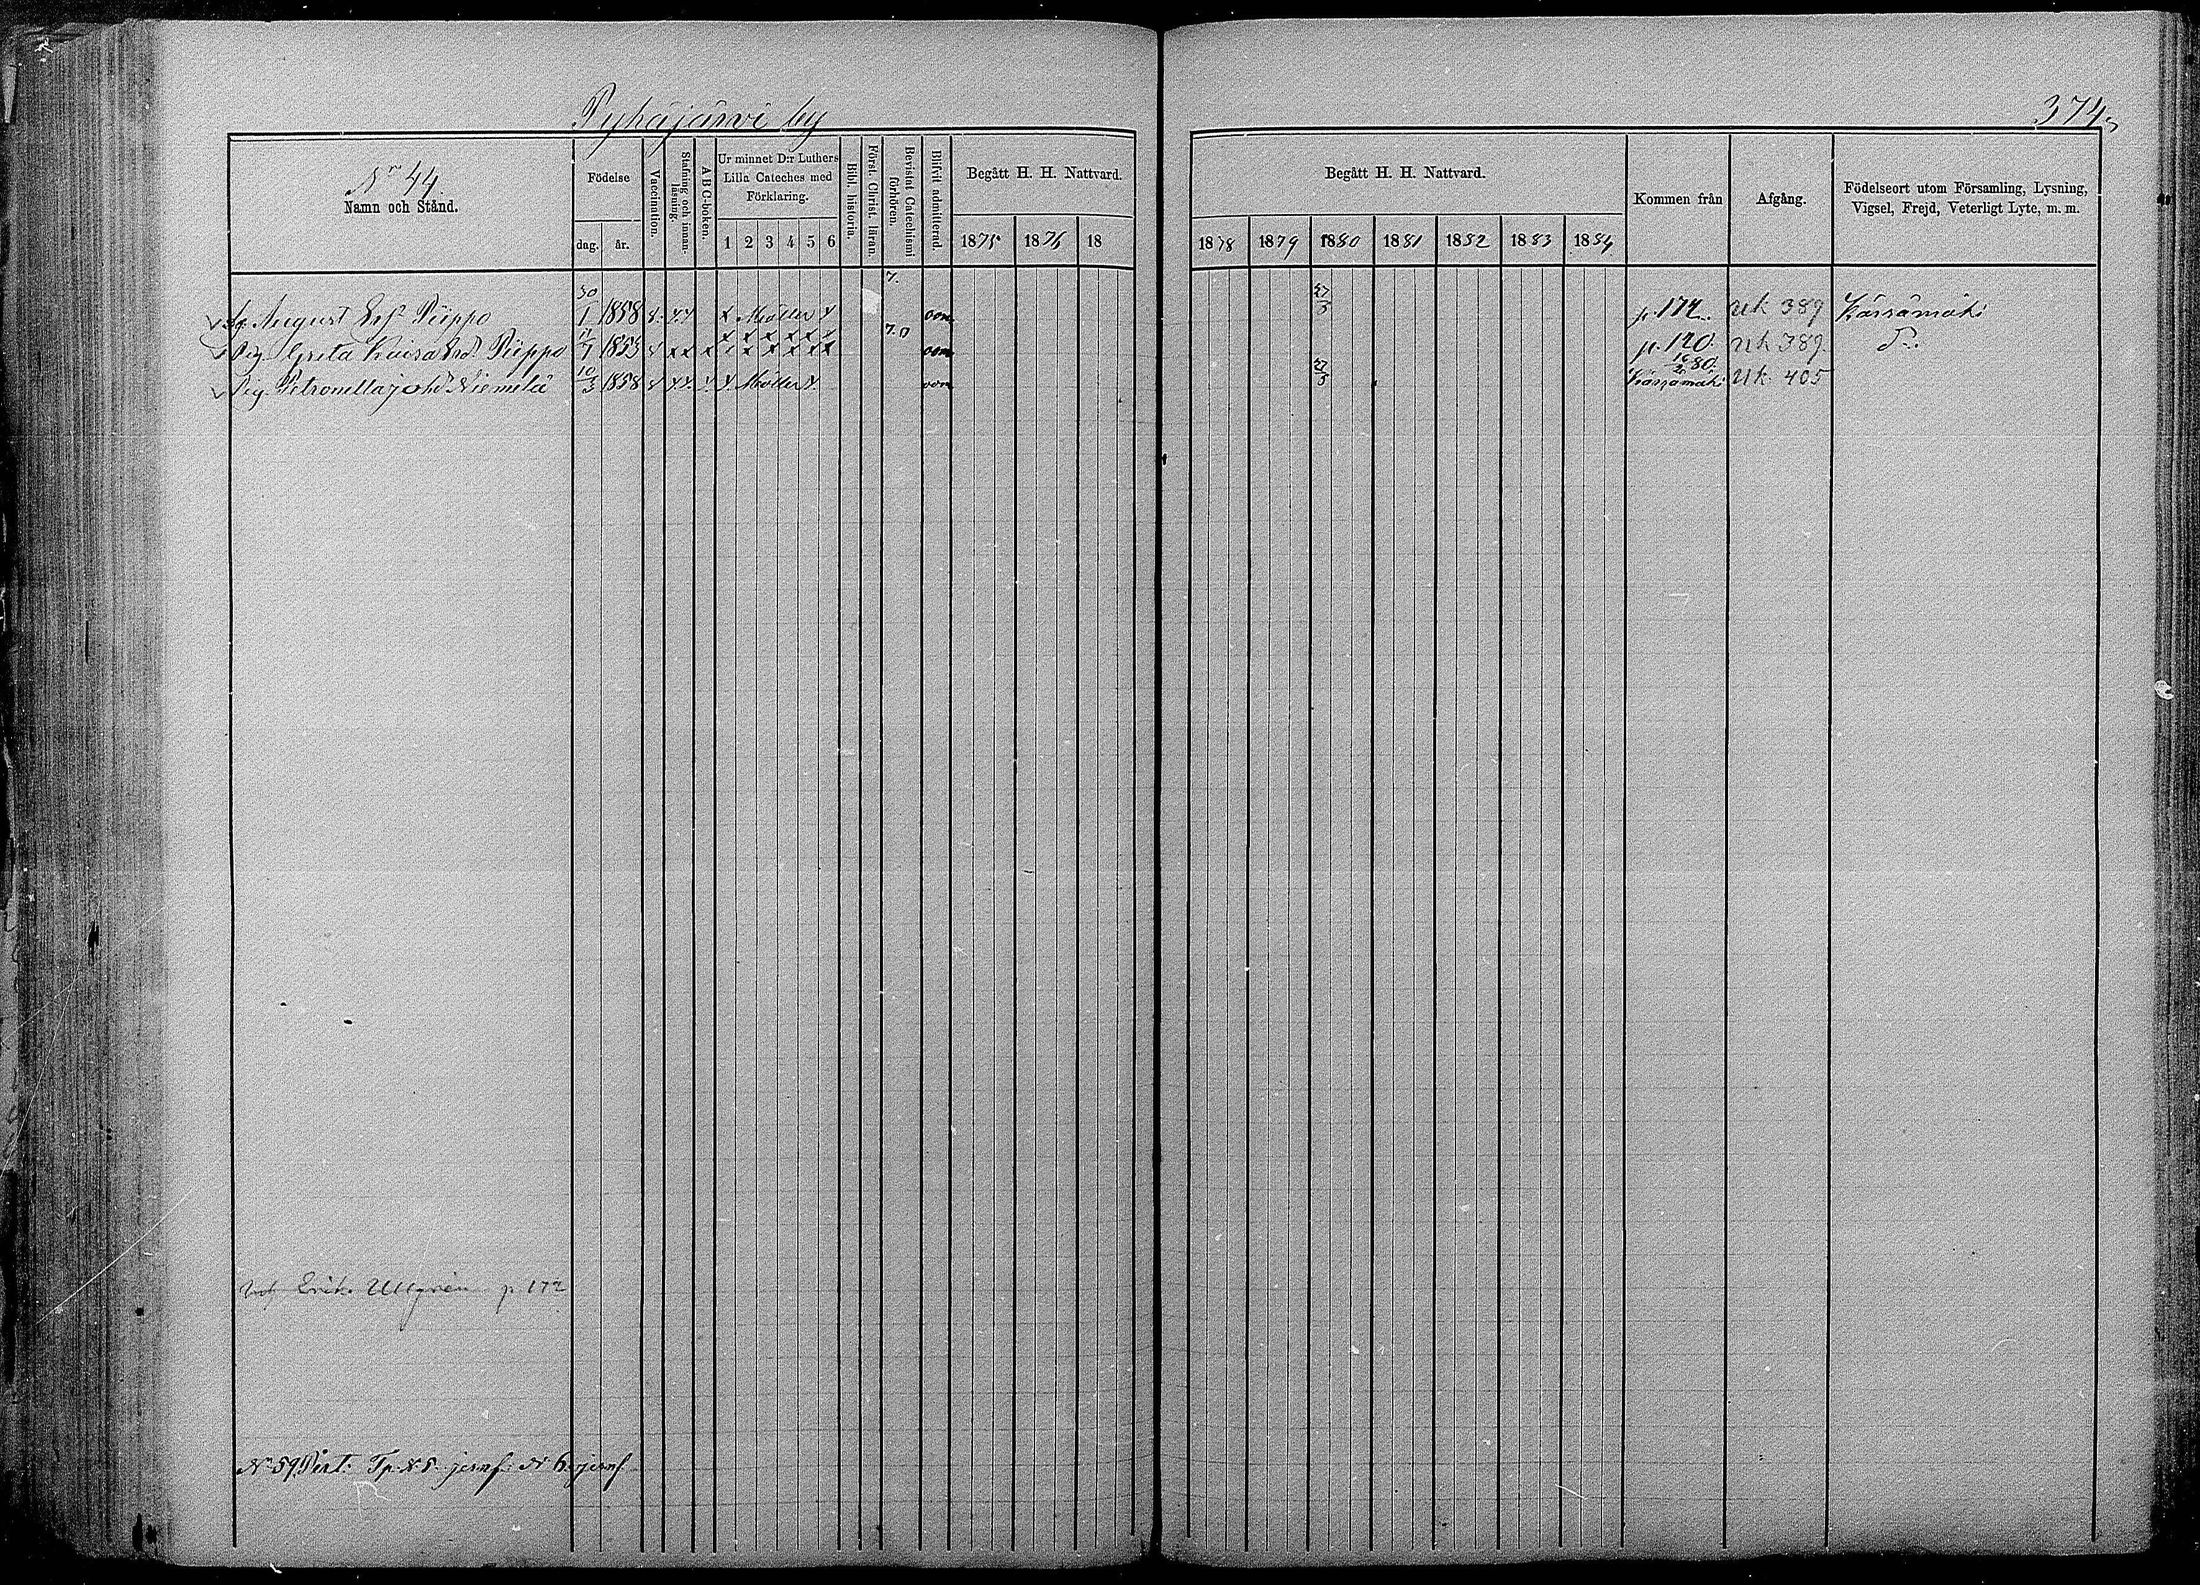 Pyhäjärvi by
374
No 44.
Namn och Stånd.
Födelse
dag. år.
Vaccination.
Stafning och innan-läsning.
A B C-boken.
Ur minnet D:r Luthers Lilla Cateches med Förklaring.
1 2 3 4 5 6
Bibl. historia.
Först. Christ. läran.
Bevistat Catechismi förhören.
Blifvit admitterad
Begått H. H. Nattvard.
1875 1876 18
Begått H. H. Nattvard.
1878 1879 1880 1881 1882 1883 1884
Kommen från
Afgång.
Födelseort utom Församling, Lysning, Vigsel, Frejd, Veterligt Lyte, m. m.
August Piippo 30/1 1858 x Mutter x 7. 27/3 p. 174. Uk 389 Kärsämäki
Pig. Greta Kaisa Piippo 1853 x x x x x x x 7.0 p. 120. Uk 389 D:o
Pig. Petronella Joh.d. Niemelä 10/3 1858 27/3 Kärsämäki 80. Uk. 405
Erik Ullgrén p. 172
No 59 Tp. N 5. jemf. N 6. jemf.